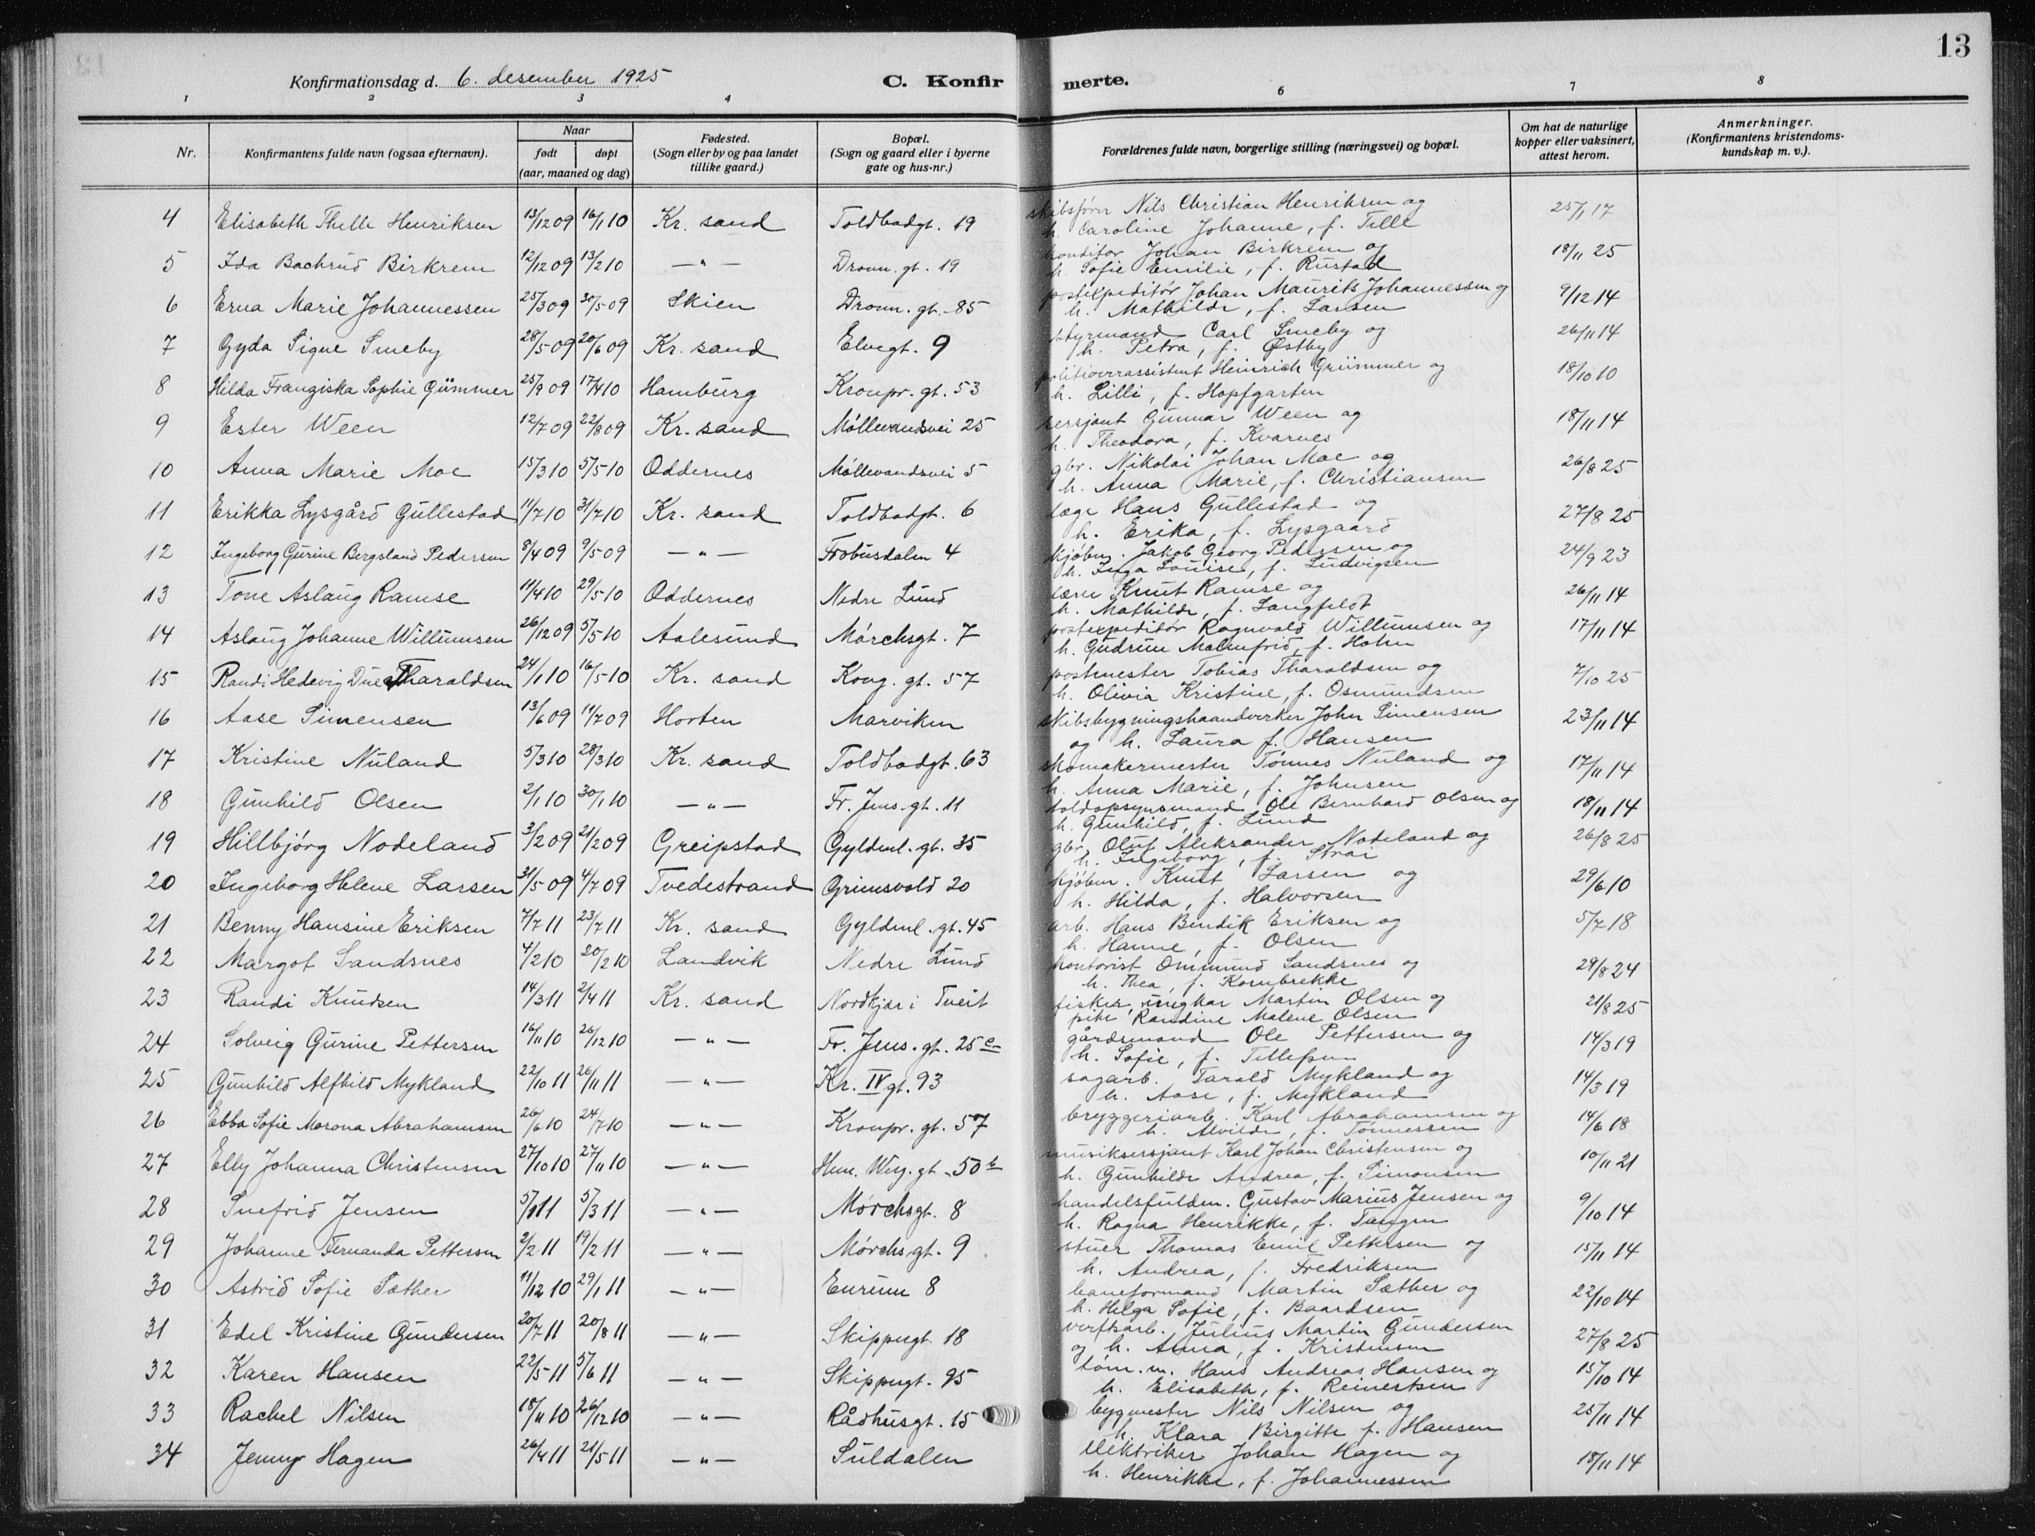 13
Konfirmationsdag d. 6. desember 1925
C. Konfirmerte.
1 2 3 4 6 7 8
Nr.
Konfirmantens fulde navn (ogsaa efternavn).
Naar
født døpt
(aar, maaned og dag)
Fødested.
(Sogn eller by og paa landet
tillike gaard.)
Bopæl.
(Sogn og gaard eller i byerne
gate og hus-nr.)
Forældrenes fulde navn, borgerlige stilling (næringsvei) og bopæl.
Om hat de naturlige
kopper eller vaksinert,
attest herom.
Anmerkninger.
(Konfirmantens kristendoms-
kundskap m. v.)
4 Elisabeth Thelle Henriksen 13/12 09 16/1 10 Kr. sand Toldbodgt. 19 skibsfører Nils Christian Henriksen og 25/1 17
h. Caroline Johanne, f. Tille
5 Ida Bachrud Birkrem 12/12 09 13/2 10 —"— Dronn. gt. 19 konditor Johan Birkrem og 18/11 25
h. Sofie Emilie, f. Rustad
6 Erna Marie Johannessen 25/3 09 30/5 09 Skien Dronn. gt. 85 postexpeditør Johan Maurits Johannessen og 9/12 14
h. Mathilde, f. Larsen
7 Gyda Signe Smeby 28/5 09 20/6 09 Kr. sand Elvegt. 9 styrmand Carl Smeby og 26/11 14
h. Petra, f. Østby
8 Hilda Franziska Sophie Gümmer 25/9 09 17/4 10 Hamburg Kronpr. gt. 53 politioverassistent Heinrich Grümmer og 18/10 10
h. Lilli, f. Hopfgarten
9 Ester Ween 12/7 09 22/8 09 Kr. sand Møllevandsvei 25 sersjant Gunnar Ween og 18/11 14
h. Theodora, f. Kvarnes
10 Anna Marie Moe 15/3 10 5/5 10 Oddernes Møllevandsvei 5 gbr. Nikolai Johan Moe og 26/8 25
h. Anna Marie, f. Christiansen
11 Erikka Lysgård Gullestad 11/7 10 31/7 10 Kr. sand Toldbodgt. 6 læge Hans Gullestad og 27/8 25
h. Erika, f. Lysgaard
12 Ingeborg Gurine Bergsland Pedersen 8/4 09 9/5 09 —"— Frobusdalen 4 kjøbm. Jakob Georg Pedersen og 24/9 23
h. Inga Louise, f. Ludvigsen
13 Tone Aslaug Ramse 11/4 10 29/5 10 Oddernes Nedre Lund lærer Knut Ramse og 26/11 14
h. Mathilde, f. Langfeldt
14 Aslaug Johanne Willumsen 26/12 09 5/5 10 Aalesund Mørchsgt. 7 postexpeditør Ragnvald Willumsen og 17/11 14
h. Gudrun Malmfrid, f. Holm
15 Randi Hedevig Due Tharaldsen 24/1 10 16/5 10 Kr. sand Kong. gt. 57 postmester Tobias Tharaldsen og 7/10 25
h. Olivia Kristine, f. Osmundsen
16 Aase Simensen 13/6 09 11/7 09 Horten Marviken skibsbygningshaandverker John Simensen 23/11 14
og h. Laura f. Hansen
17 Kristine Nuland 5/3 10 28/3 10 Kr. sand Toldbodgt. 63 skomakermester Tønnes Nuland og 17/11 14
h. Anna Marie, f. Johnsen
18 Gunhild Olsen 2/1 10 30/1 10 —"— Fr. Jens. gt. 11 toldopsynsmand Ole Bernhard Olsen og 18/11 14
h. Gunhild, f. Lund
19 Hillbjørg Nodeland 3/2 09 21/2 09 Greipstad Gyldenl. gt. 35 gbr. Oluf Aleksander Nodeland og 26/8 25
h. Ingeborg, f. Strai
20 Ingeborg Helene Larsen 31/5 09 4/7 09 Tvedestrand Grimsvold 20 kjøbm. Knut Larsen og 29/6 10
h. Hilda, f. Halvorsen
21 Benny Hansine Eriksen 7/7 11 23/7 11 Kr. sand Gyldenl. gt. 45 arb. Hans Bendik Eriksen og 5/7 18
h. Hanne, f. Olsen
22 Margot Sandsnes 4/2 10 20/2 10 Landvik Nedre Lund kontorist Ommund Sandsnes og 29/8 24
h. Thea, f. Kornbrekke
23 Randi Knudsen 14/3 11 2/4 11 Kr. sand Nordkjær i Tveit fisker, ungkar Martin Olsen og 21/8 25
pike Randine Malene Olsen
24 Solveig Gurine Pettersen 16/11 10 26/12 10 —"— Fr. Jens. gt. 25 c gårdsmand Ole Pettersen og 14/3 19
h. Sofie, f. Tellefsen
25 Gunhild Alfhild Mykland 22/10 11 26/11 11 —"— Kr. IV gt. 93 sagarb. Tarald Mykland og 14/3 19
h. Aase, f. Mykland
26 Ebba Sofie Morona Abrahamsen 26/6 10 24/7 10 —"— Kronpr. gt. 57 bryggeriarb. Karl Abrahamsen og 14/6 18
h. Alvilde, f. Tønnessen
27 Elly Johanna Christensen 27/10 10 27/11 10 —"— Hen. Weg. gt. 50 b musiksersjant Karl Johan Christensen og 10/11 21
h. Gunhilde Andrea, f. Simonsen
28 Snefrid Jensen 5/1 11 5/3 11 —"— Mørchsgt. 8 handelsfuldm. Gustav Marius Jensen og 9/10 14
h. Ragna Henrikke, f. Tangen
29 Johanne Fernanda Pettersen 2/2 11 19/2 11 —"— Mørchsgt. 9 stuer Thomas Emil Pettersen og 15/11 14
h. Andrea, f. Fredriksen
30 Astrid Sofie Sæther 11/12 10 29/1 11 —"— Enrum 8 baneformand Martin Sæther og 22/10 14
h. Helga Sofie, f. Baardsen
31 Edel Kristine Gundersen 20/7 11 20/8 11 —"— Skippergt. 18 verftsarb. Julius Martin Gundersen 27/8 25
og h. Anna, f. Kristensen
32 Karen Hansen 22/5 11 5/6 11 —"— Skippergt. 95 tøm.m. Hans Andreas Hansen og 15/10 14
h. Elisabeth, f. Reinertsen
33 Rachel Nilsen 18/11 10 26/12 10 —"— Rådhusgt. 15 bygmester Nils Nilsen og 25/11 14
h. Klara Birgitte f. Hansen
34 Jenny Hagen 26/4 11 21/5 11 —"— Suldalen elektriker Johan Hagen og 18/11 14
h. Henrikke, f. Johannessen